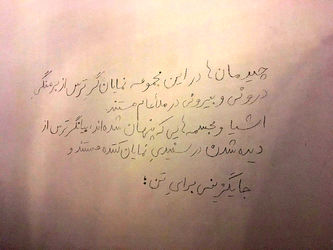 چیدمان‌ها در این مجموعه نمایان‌گر ترس از برهنگی
درونی و بیرونی در ملاءعام هستند
اشیا و مجسمه‌هایی که پنهان شده‌اند، بیانگر ترس از
دیده شدن در سفیدیِ نمایان‌کننده هستند و
جایگزینی برایِ تن؛